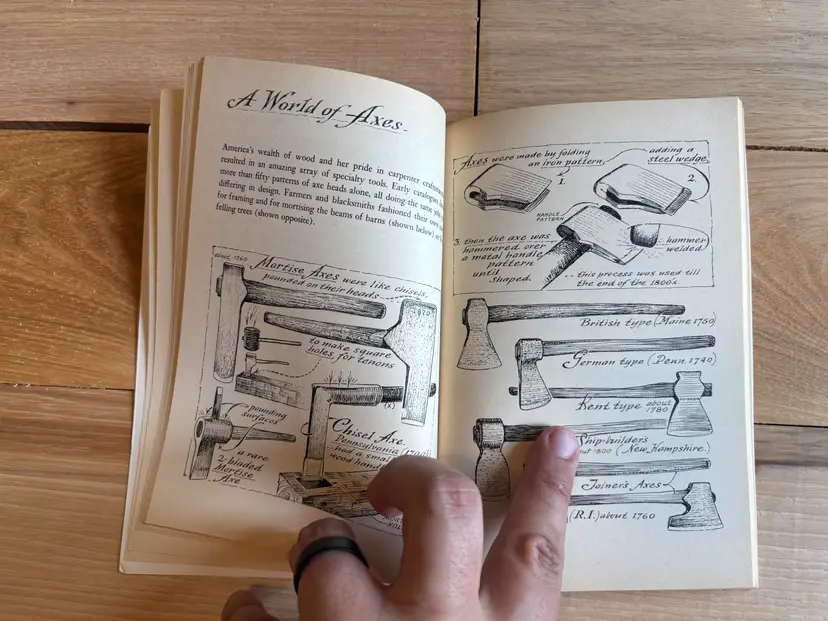 A World of Axes.
America's wealth of wood and her pride in carpenter
resulted in an amazing array of specialty tools. Early catalogues
more than fifty patterns of axe heads alone, all doing the same
differing in design. Farmers and blacksmiths fashioned their own
for framing and for mortising the beams of barns (shown below)
felling trees (shown opposite).
about 1760
Mortise Axes were like chisels,
pounded on their heads
1820
to make square
holes for tenons
(x)
pounding
surfaces
a rare
2-bladed
Mortise
Axe
Chisel Axe.
Pennsylvania
had a small
wood
Axes were made by folding
an iron pattern,
1.
adding a
steel wedge,
2.
HANDLE
PATTERN
3. then the axe was
hammered over
a metal handle
pattern
until
shaped.
hammer
welded
this process was used till
the end of the 1800's.
British type (Maine 1750)
German type (Penn. 1740)
Kent type about
1780
Ship-builder's
1800 (New Hampshire.)
Joiner's Axes
(R.I.) about 1760